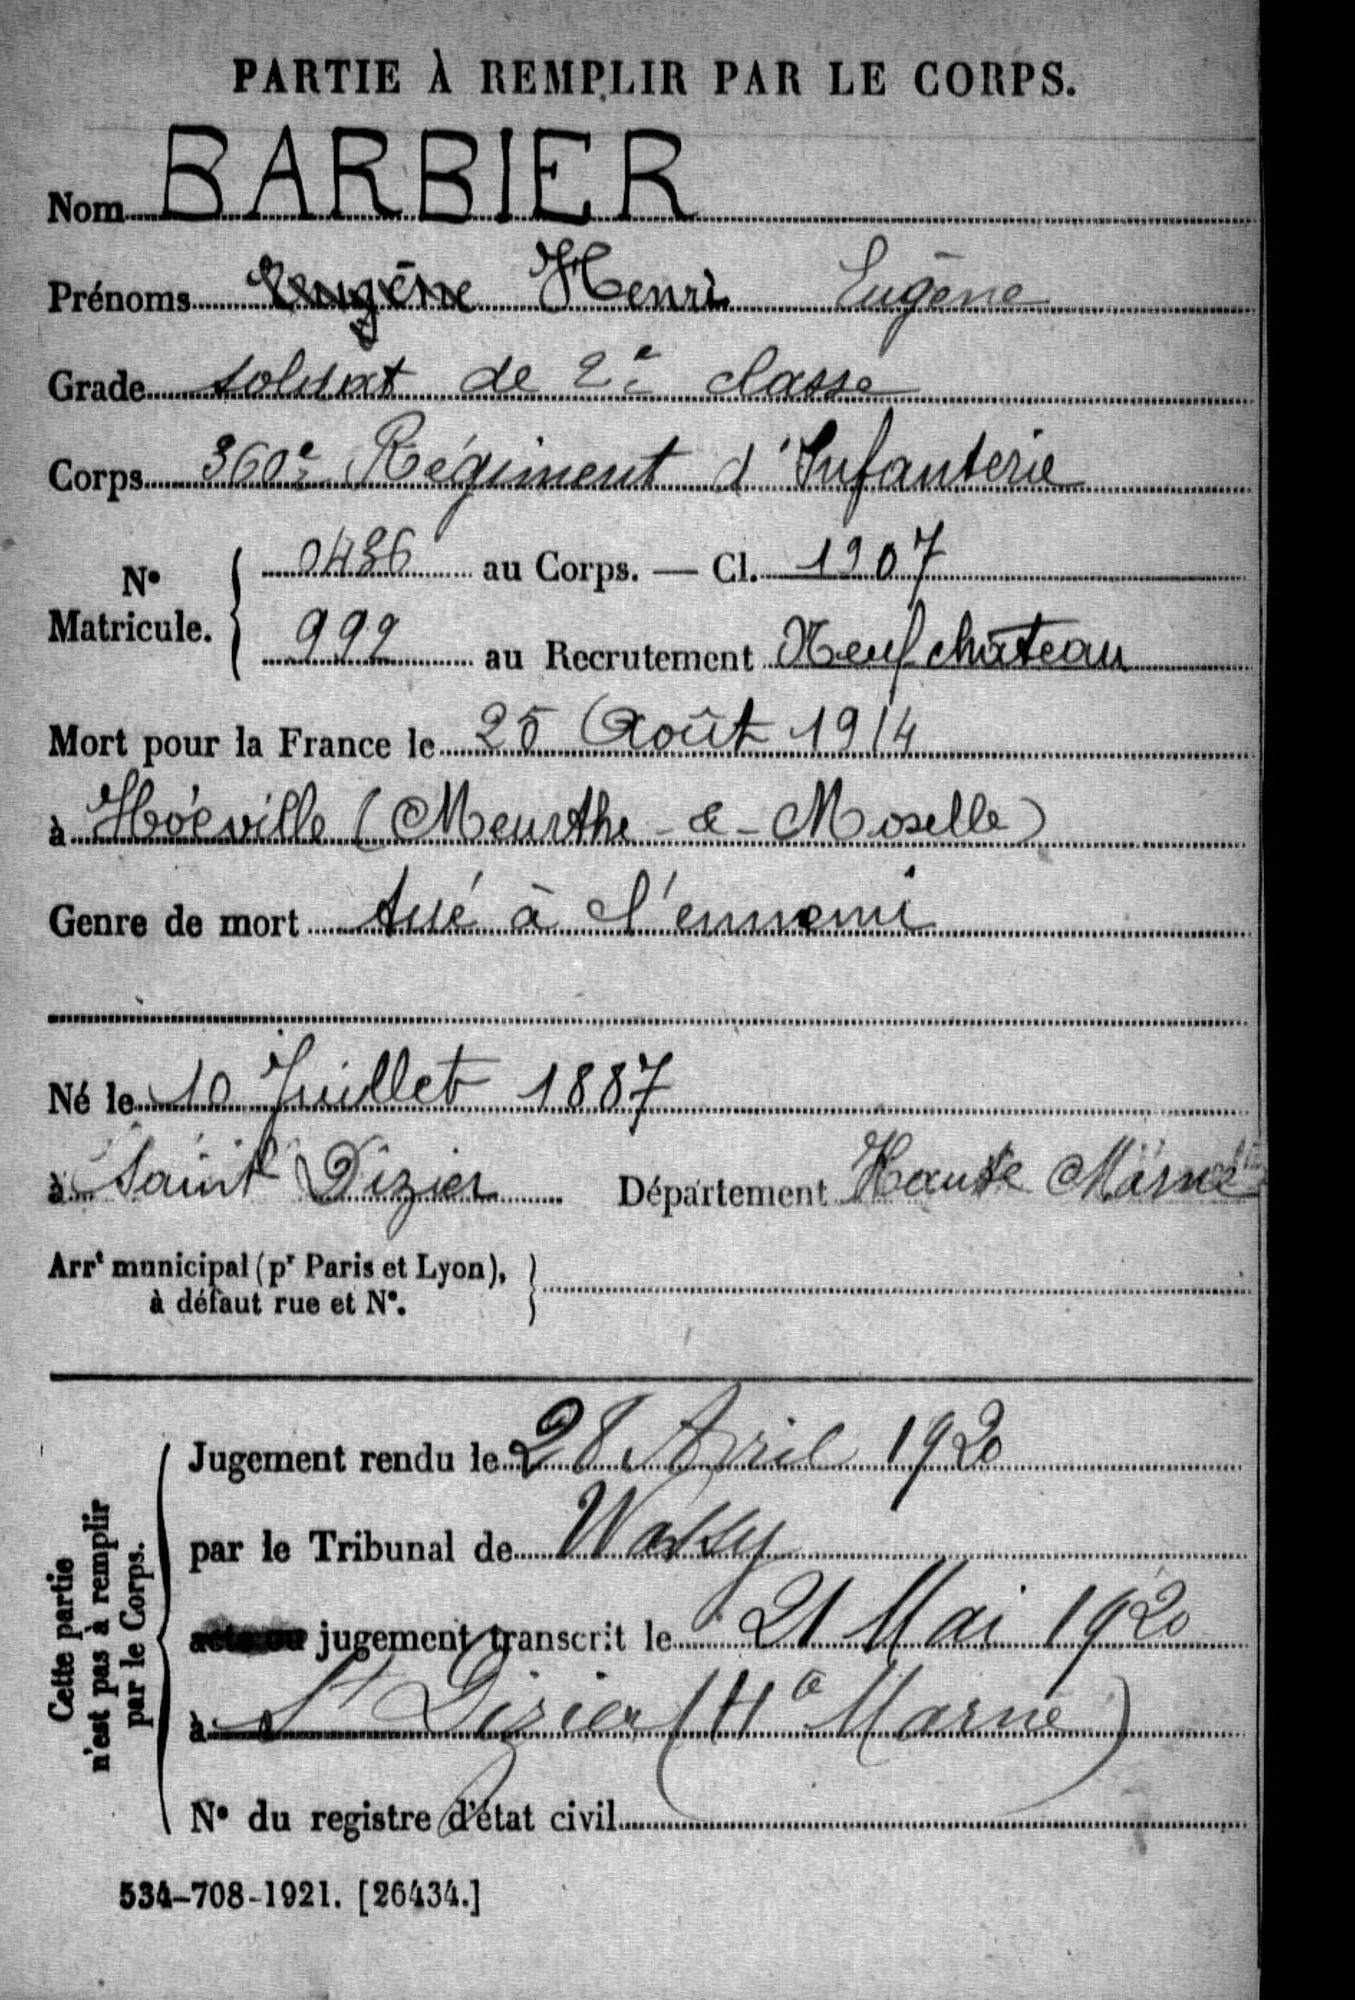 PARTIE À REMPLIR PAR LE CORPS.
Nom BARBIER
Prénoms Eugène Henri Eugène
Grade soldat de 2e classe
Corps 360e Régiment d'Infanterie
No Matricule. { 0436 au Corps. — Cl. 1907
999 au Recrutement Neufchâteau
Mort pour la France le 25 Août 1914
à Hoéville (Meurthe-&-Moselle)
Genre de mort tué à l'ennemi
Né le 10 Juillet 1887
à Saint Dizier Département Haute Marne
Arrt municipal (pr Paris et Lyon), à défaut rue et No.
Cette partie n'est pas à remplir par le Corps.
Jugement rendu le 28 Avril 1920
par le Tribunal de Wassy
acte ou jugement transcrit le 21 Mai 1920
à St Dizier (Hte Marne)
No du registre d'état civil
534-708-1921. [26434.]